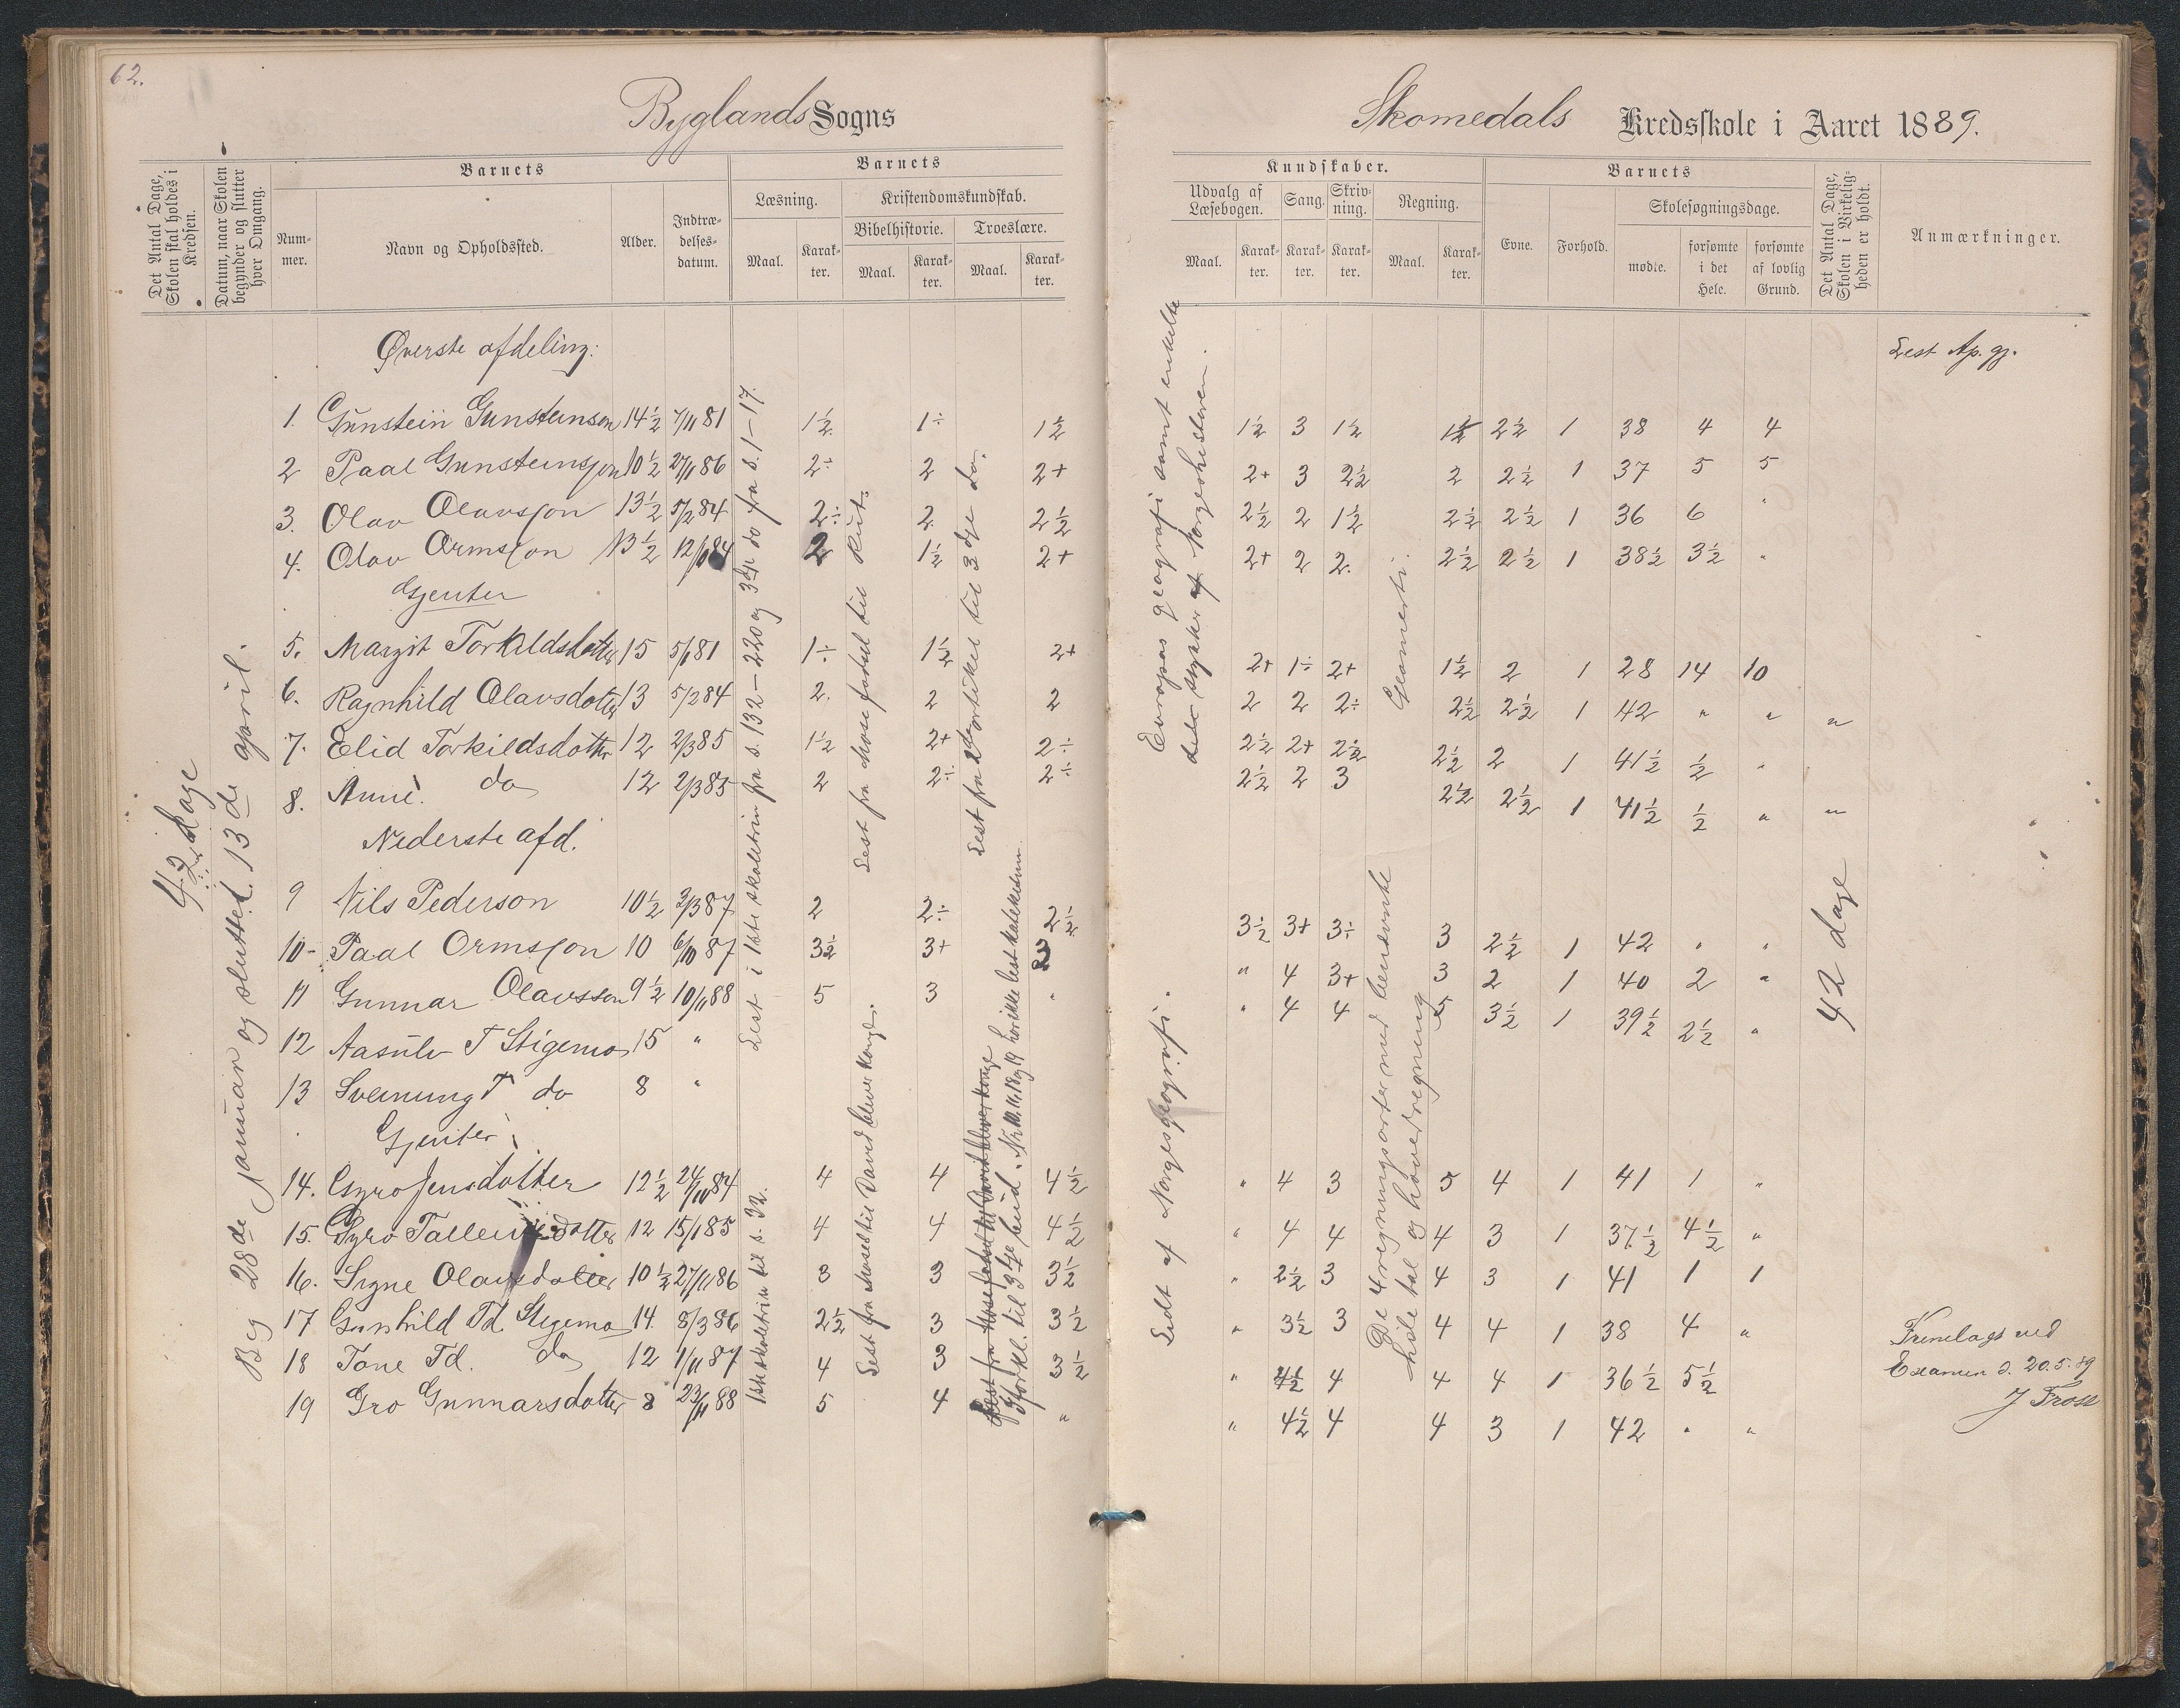 62.
Byglands Sogns
Det Antal Dage, Skolen skal holdes i Kredsen.
Datum, naar Skolen begynder og slutter hver Omgang.
Barnets
Nummer.
Navn og Opholdssted.
Alder.
Indtrædelsesdatum.
Barnets
Læsning.
Maal.
Karakter.
Kristendomskundskab.
Bibelhistorie.
Maal.
Karakter.
Troeslære.
Maal.
Karakter.
42 dage
Beg 28de januar og sluttet 13de april.
Øverste afdeling:
1. Gunstein Gunsteinson 14½ 7/11 81 1½ 1÷ 1½
2 Paal Gunsteinsson 10½ 27/11 86 2÷ 2 2+
3. Olav Olavsson 13½ 5/2 84 2÷ 2. 2½
4. Olav Ormsson 13½ 12/10 84 2 1½ 2+
Gjenter
5. Margit Torkildsdotter 15 5/1 81 1÷ 1½ 2+
6. Ragnhild Olavsdotter 13 5/2 84 2. 2 2
7. Elid Torkildsdotter 12 2/3 85 1½ 2+ 2÷
8. Anne. do 12 2/3 85 2 2÷ 2÷
Nederste afd.
9 Nils Pederson 10½ 2/3 87 2 2÷ 2½
10- Paal Ormsson 10 6/10 87 3½ 3+ 3
11 Gunnar Olavsson 9½ 10/11 88 5 3 "
12 Aasulv T Stigemo 15 "
13 Sveinung T do 8 "
Gjenter
14. Gyro Jensdotter 12½ 24/11 84 4 4 4½
15. Gyro Talleivsdotter 12 15/1 85 4 4 4½
16. Signe Olavsdotter 10½ 27/11 86 3 3 3½
17 Gunhild Td. Stigemo 14. 8/3 86 2½ 3 3½
18 Tone Td. do 12 1/11 87 4 3 3½
19 Gro Gunnarsdotter 8 23/11 88 5 4 "
Lest i 1ste skoletrin fra s. 132-220 og 3die do fra s. 1-17.
1ste skoletrin til s. 92.
Lest fra Mose fødsel til Rut.
Lest fra Moses til David bliver konge.
Lest fra 2 artikel til 3dje do.
Lest fra Mose fødsel til David bliver konge
Forkl. til 3dje bud. Nr. 10. 11. 18 og 19 har ikke lest katekismen
Skomedals Kredsskole i Aaret 1889.
Kundskaber.
Udvalg af Læsebogen.
Maal.
Karakter.
Sang.
Karakter.
Skrivning.
Karakter.
Regning.
Maal.
Karakter.
Barnets
Evne.
Forhold.
Skolesøgningsdage.
mødte.
forsømte i det Hele.
forsømte af lovlig Grund.
Det Antal Dage, Skolen i Virkeligheden er holdt.
Anmærkninger.
Lest Ap. gj.
Europas geografi samt enkelte
stykker af Norgeshistorien.
Geometri.
1½ 3 1½ 1½ 2½ 1 38 4 4
2+ 3 2½ 2 2½ 1 37 5 5
2½ 2 1½ 2½ 2½ 1 36 6 "
2+ 2 2. 2½ 2½ 1 38½ 3½ "
2+ 1÷ 2+ 1½ 2 1 28 14 10
2 2 2÷ 2½ 2½ 1 42 " " "
2½ 2+ 2½ 2½ 2 1 41½ ½ "
2½ 2 3 2½ 2½ 1 41½ ½ " "
Lidt af Norgesgeografi.
De 4 regningsarter med benævnte
hele tal og hovedregning
42 dage
3½ 3+ 3÷ 3 2½ 1 42 " "
" 4 3+ 3 2 1 40 2 "
" 4 4 5 3½ 1 39½ 2½ "
" 4 3 5 4 1 41 1 "
" 4 4 4 3 1 37½ 4½ "
" 2½ 3 4 3 1 41 1 1
" 3½ 3 4 4 1 38 4 "
" 4½ 4 4 4 1 36½ 5½
" 4½ 4 4 3 1 42 " "
Fremlagt ved
Examen d. 20.5.89